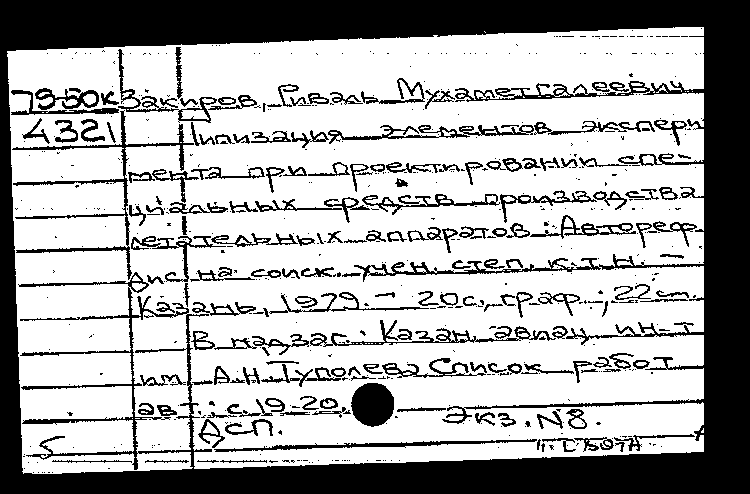 79-50к Закиров, Риваль Мухаметгалеевич
4321 Типизация элементов экспери
мента при проектировании спе-
циальных средств производства
летательных аппаратов : Автореф.
дис на соиск. учен. степ. к.т.н. —
Казань, 1979. — 20с., граф. ; 22см.
В надзаг.: Казан. авиац. ин-т
им А.Н.Туполева Список работ
авт.: с.19-20.
ДСП. Экз. N8.
5